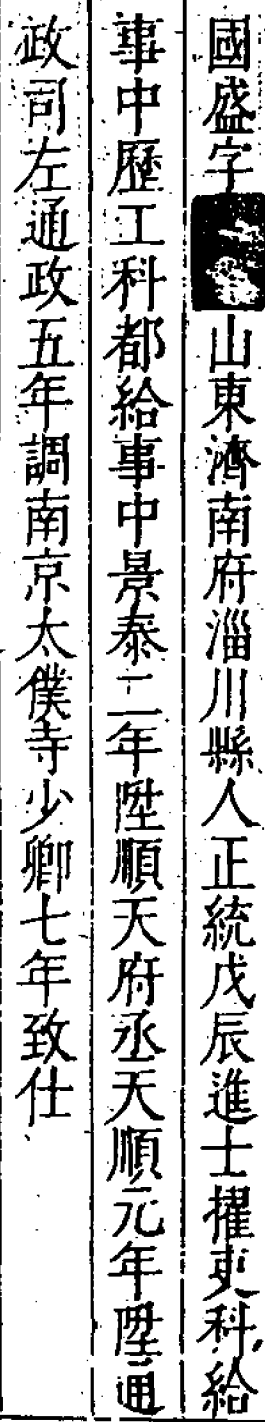 國盛字山東濟南府淄川縣人正統戊辰進士擢吏科給
事中歷工科都給事中景泰二年陞順天府丞天順元年陞通
政司左通政五年調南京太僕寺少卿七年致仕